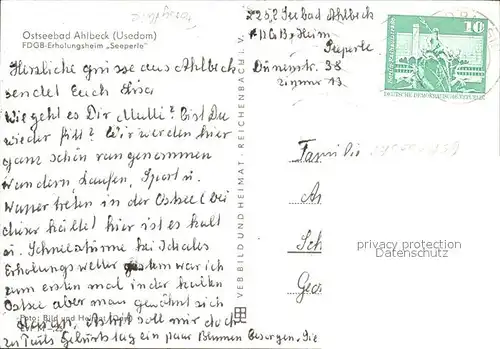 Ostseebad Ahlbeck (Usedom)
FDGB-Erholungsheim „Seeperle"
Herzliche Grüsse aus Ahlbeck
sendet Euch Lisa
Wie geht es Dir Mutti? Bist Du
wieder fitt? Wir werden hier
ganz schön rangenommen
Wandern, Laufen, Sport u.
Wasser treten in der Ostsee (bei
dieser Kälte) hier ist es kalt
u. Schneestürme bei Ideales
Erholungswetter gestern war ich
zum ersten mal in der kalten
Ostsee aber man gewöhnt sich
Foto: Bild und Heimat
soll mir doch
zu Geburtstag ein paar Blumen besorgen. Sie
VEB BILD UND HEIMAT · REICHENBACH i. V.
2252 Seebad Ahlbeck
FDGB Heim
Seeperle
Dünenstr. 38
Zimmer 13
10
DEUTSCHE DEMOKRATISCHE REPUBLIK
Familie
An
Sch
Geor
privacy protection
Datenschutz